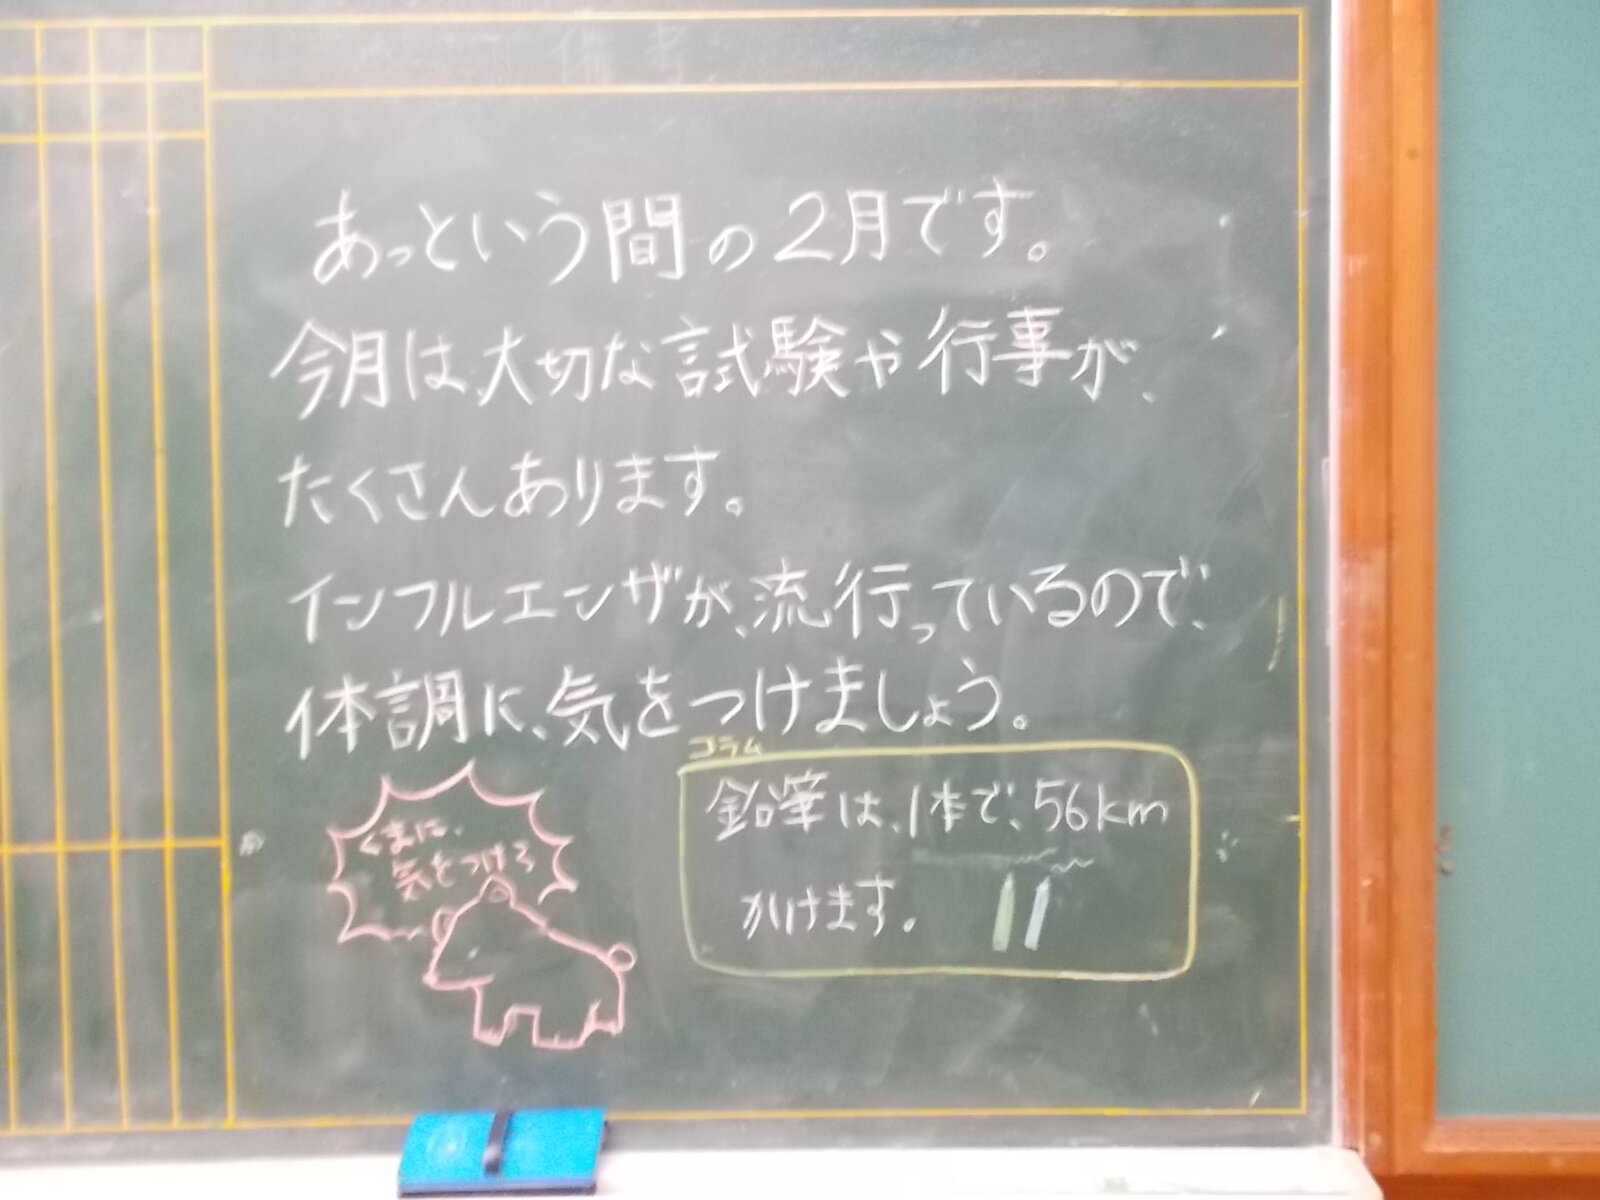 備考
あっという間の2月です。
今月は大切な試験や行事が、
たくさんあります。
インフルエンザが、流行っているので、
体調に、気をつけましょう。
コラム
鉛筆は、1本で、56km
かけます。
くまに、
気をつけろ